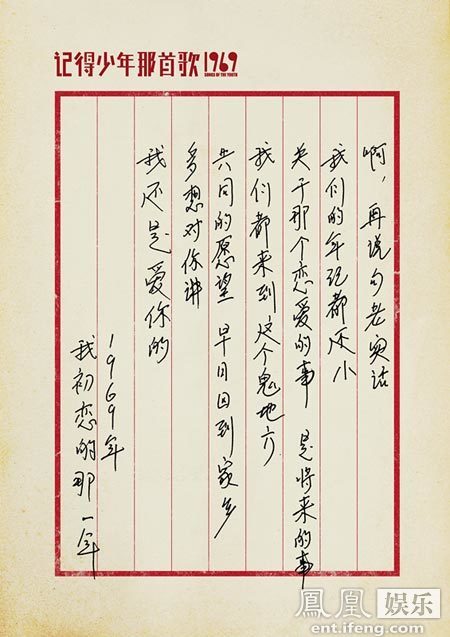 记得少年那首歌1969
SONGS OF THE YOUTH
啊，再说句老实话
我们的年纪都还小
关于那个恋爱的事 是将来的事
我们都来到这个鬼地方
共同的愿望 早日回到家乡
多想对你讲
我还是爱你的
1969年
我初恋的那一年
凤凰 娱乐
ent.ifeng.com